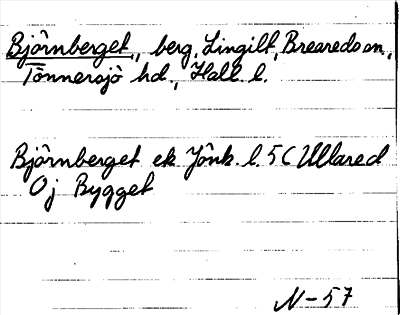 Björnberget, berg, Lingilt, Breareds sn,
Tönnersjö hd., Hall. l.
Björnberget ek Jönk. l. 5C Ullared
Oj Bygget
N-57